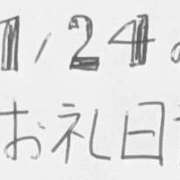 1/24
お礼日